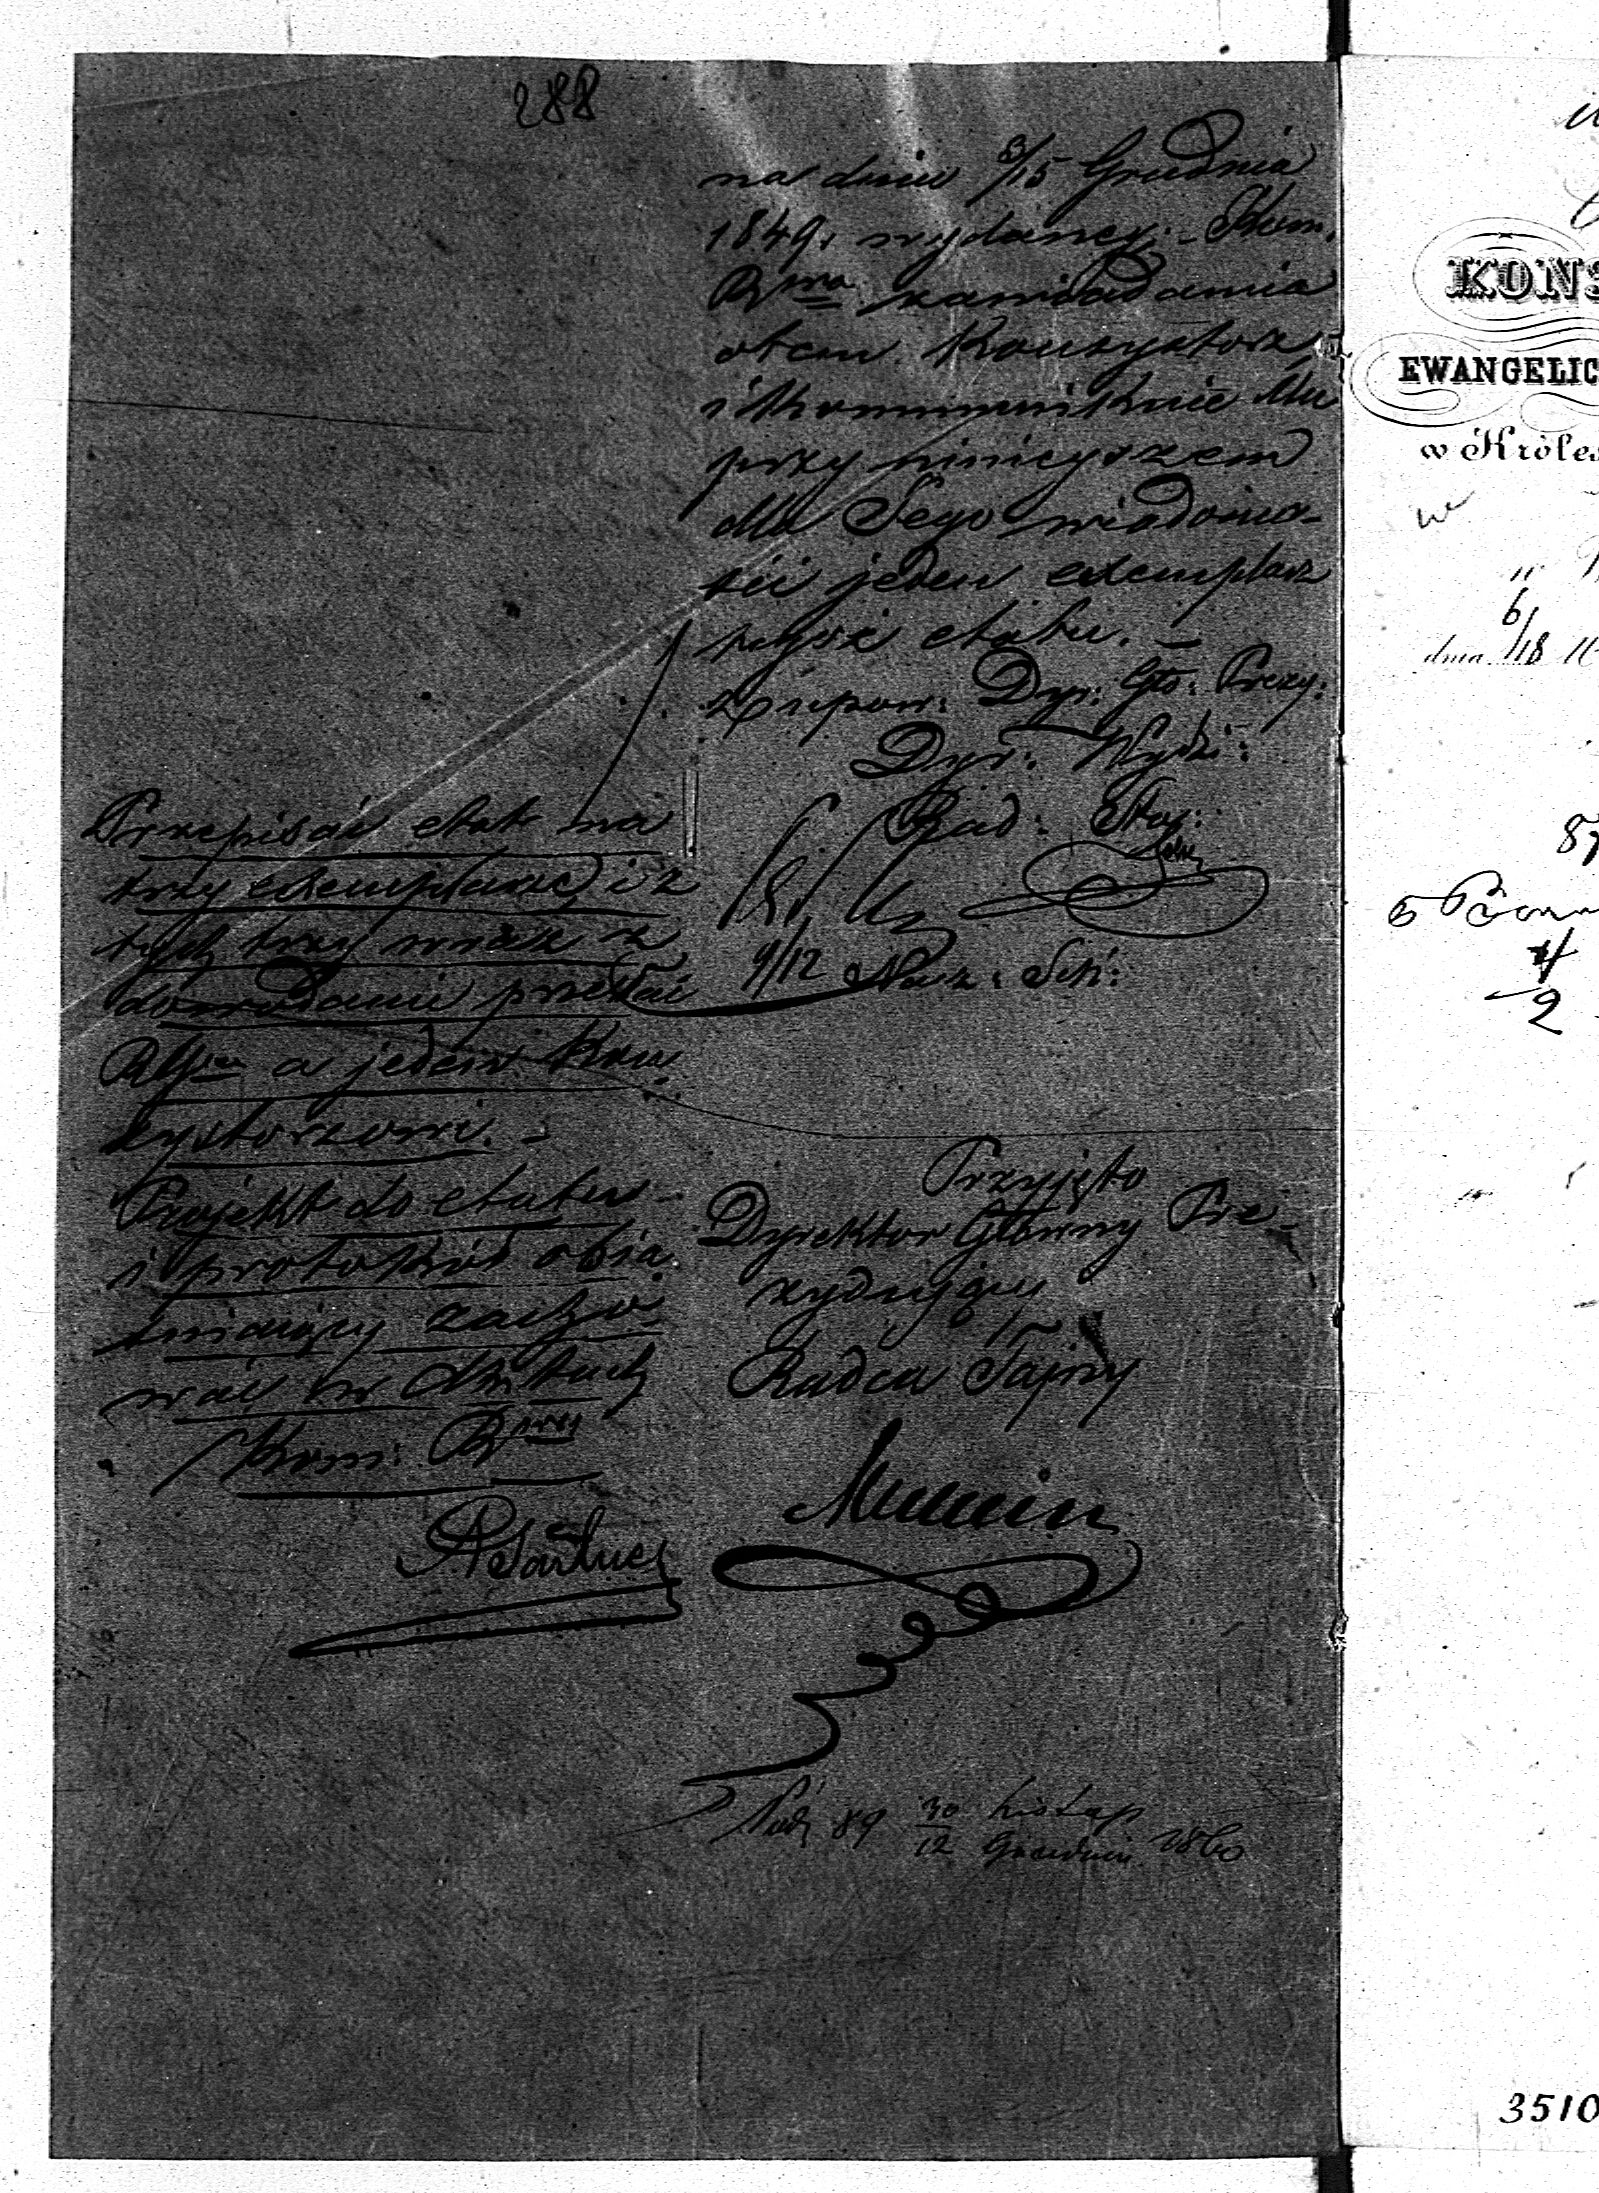 288
na dniu 3/15 Grudnia
1849 r. wydanej. - Kom.
Rz wa zawiadamia
o tem Konsystorz
i kommunikuie Mu
przy niniejszem
dla Jego wiadomo-
ści jeden exemplarz
tegoż etatu. -
Z upow: Dyr: Głó: Prezy:
Dyr: Wydz:
Rad: Stap:
9/12 Nacz: Sek:
Przepisać etat na
trzy exemplarze, i z
tych trzy wraz z
dowodami przesłać
a jeden Kon
systorzowi. -
Projekt do etatu -
i protokół obja
śniający zacho
wać w aktach
Kom: Rz wej
Przyjęto
Dyrektor Główny Pre-
zydujący
Radca Tajny
30 Listop
12 Grudnia 1860
KONS
EWANGELIC
w Króles
dnia 6/18
3510